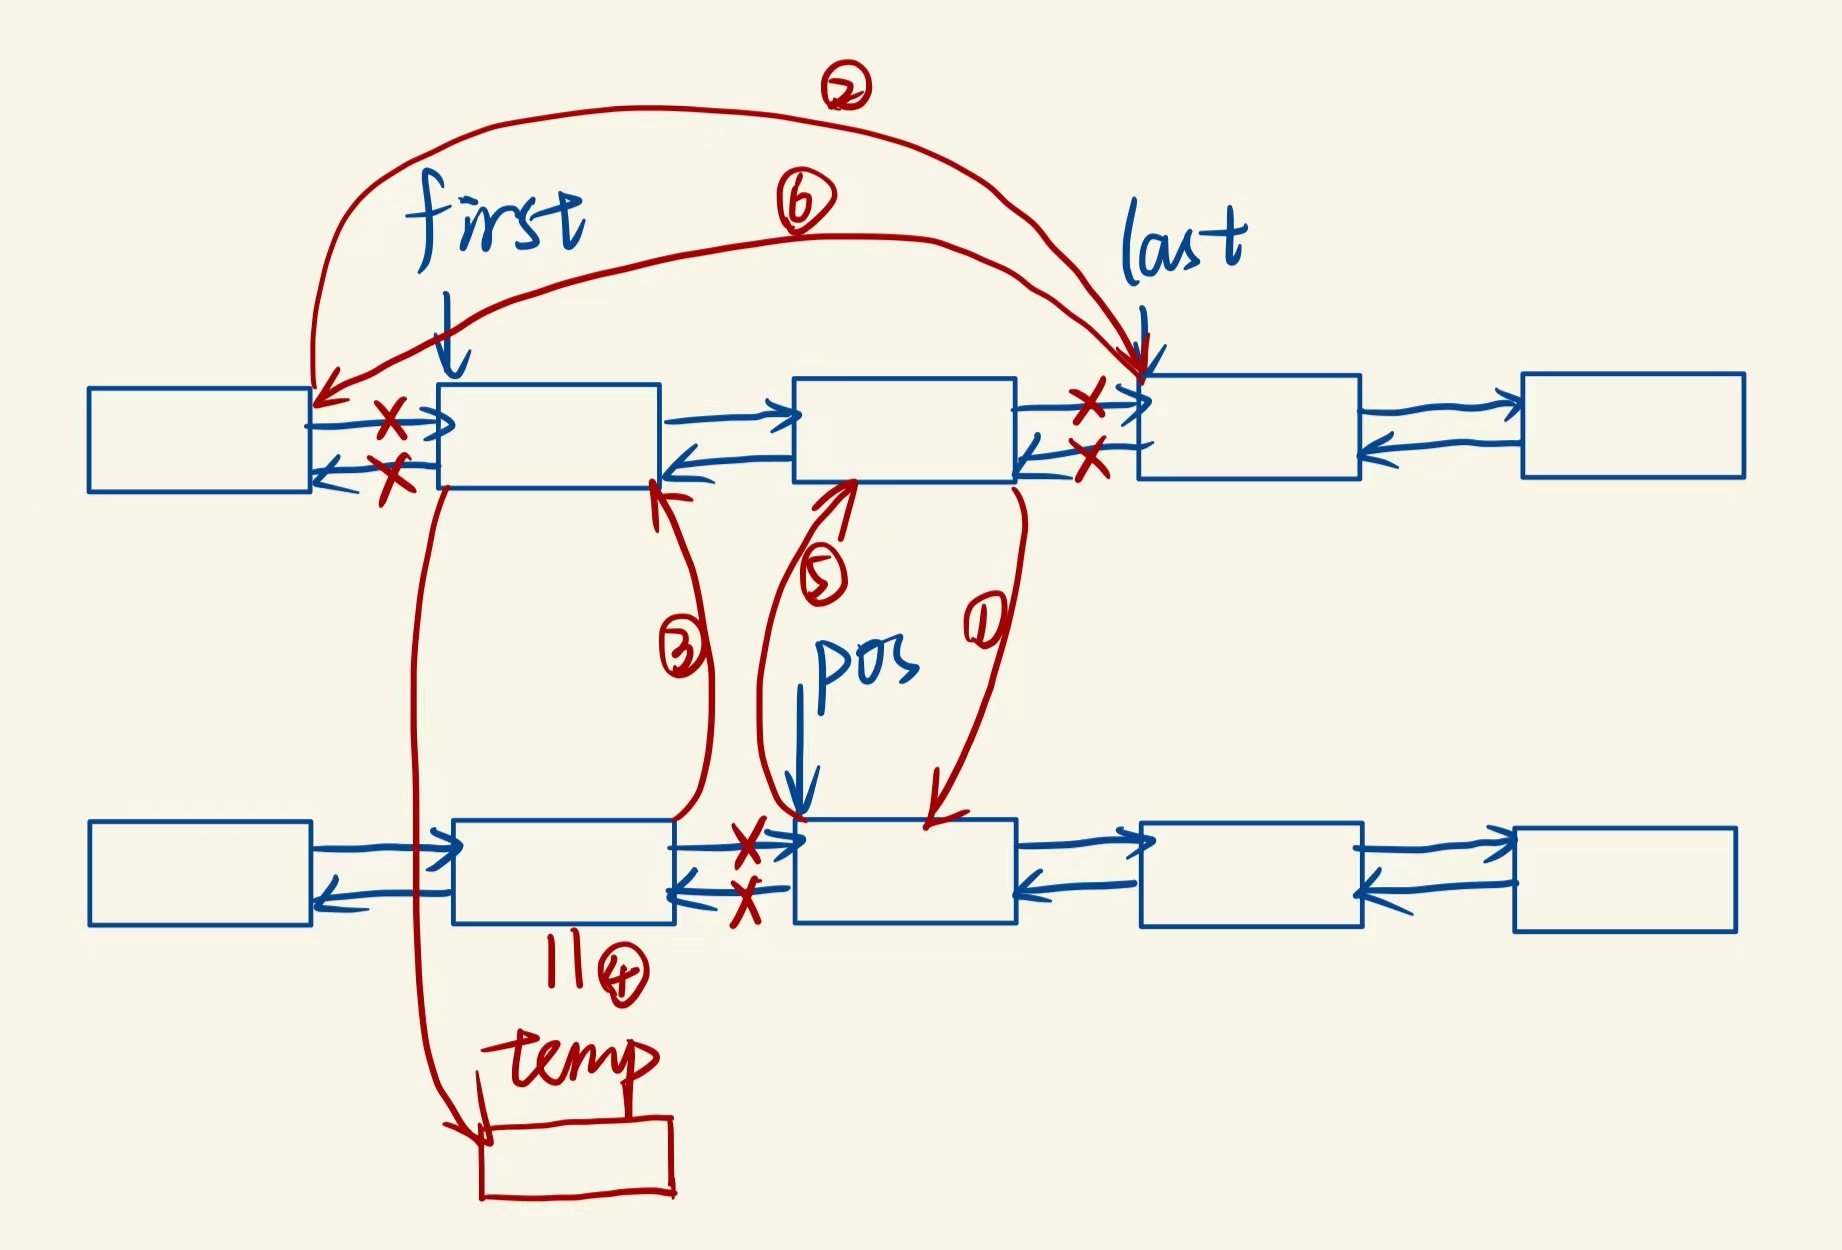 ②
⑥
first
last
⑤
①
③
pos
④
temp